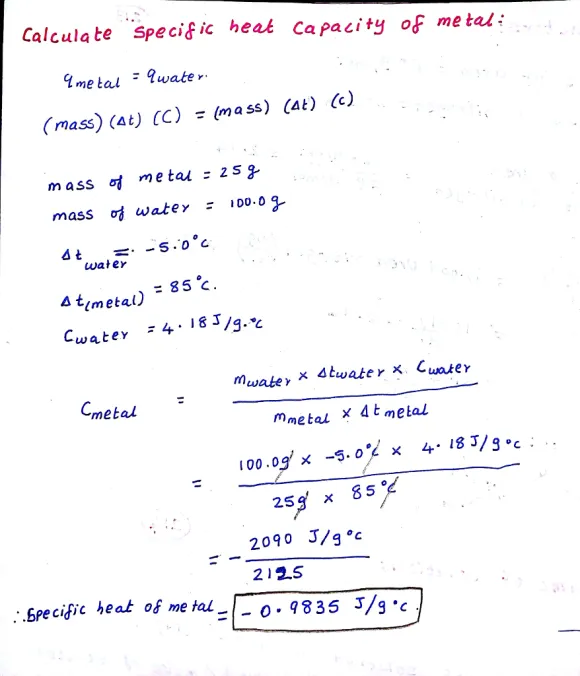 Calculate specific heat capacity of metal:
qmetal = qwater.
(mass) (Δt) (C) = (mass) (Δt) (c)
mass of metal = 25g
mass of water = 100.0g
Δt water = -5.0°c
Δt(metal) = 85°c.
Cwater = 4.18J/g.°c
Cmetal = mwater x Δtwater x Cwater
mmetal x Δt metal
= 100.0g x -5.0°c x 4.18J/g°c
25g x 85°c
= - 2090 J/g°c
2125
∴.Specific heat of metal = - 0.9835 J/g°c.